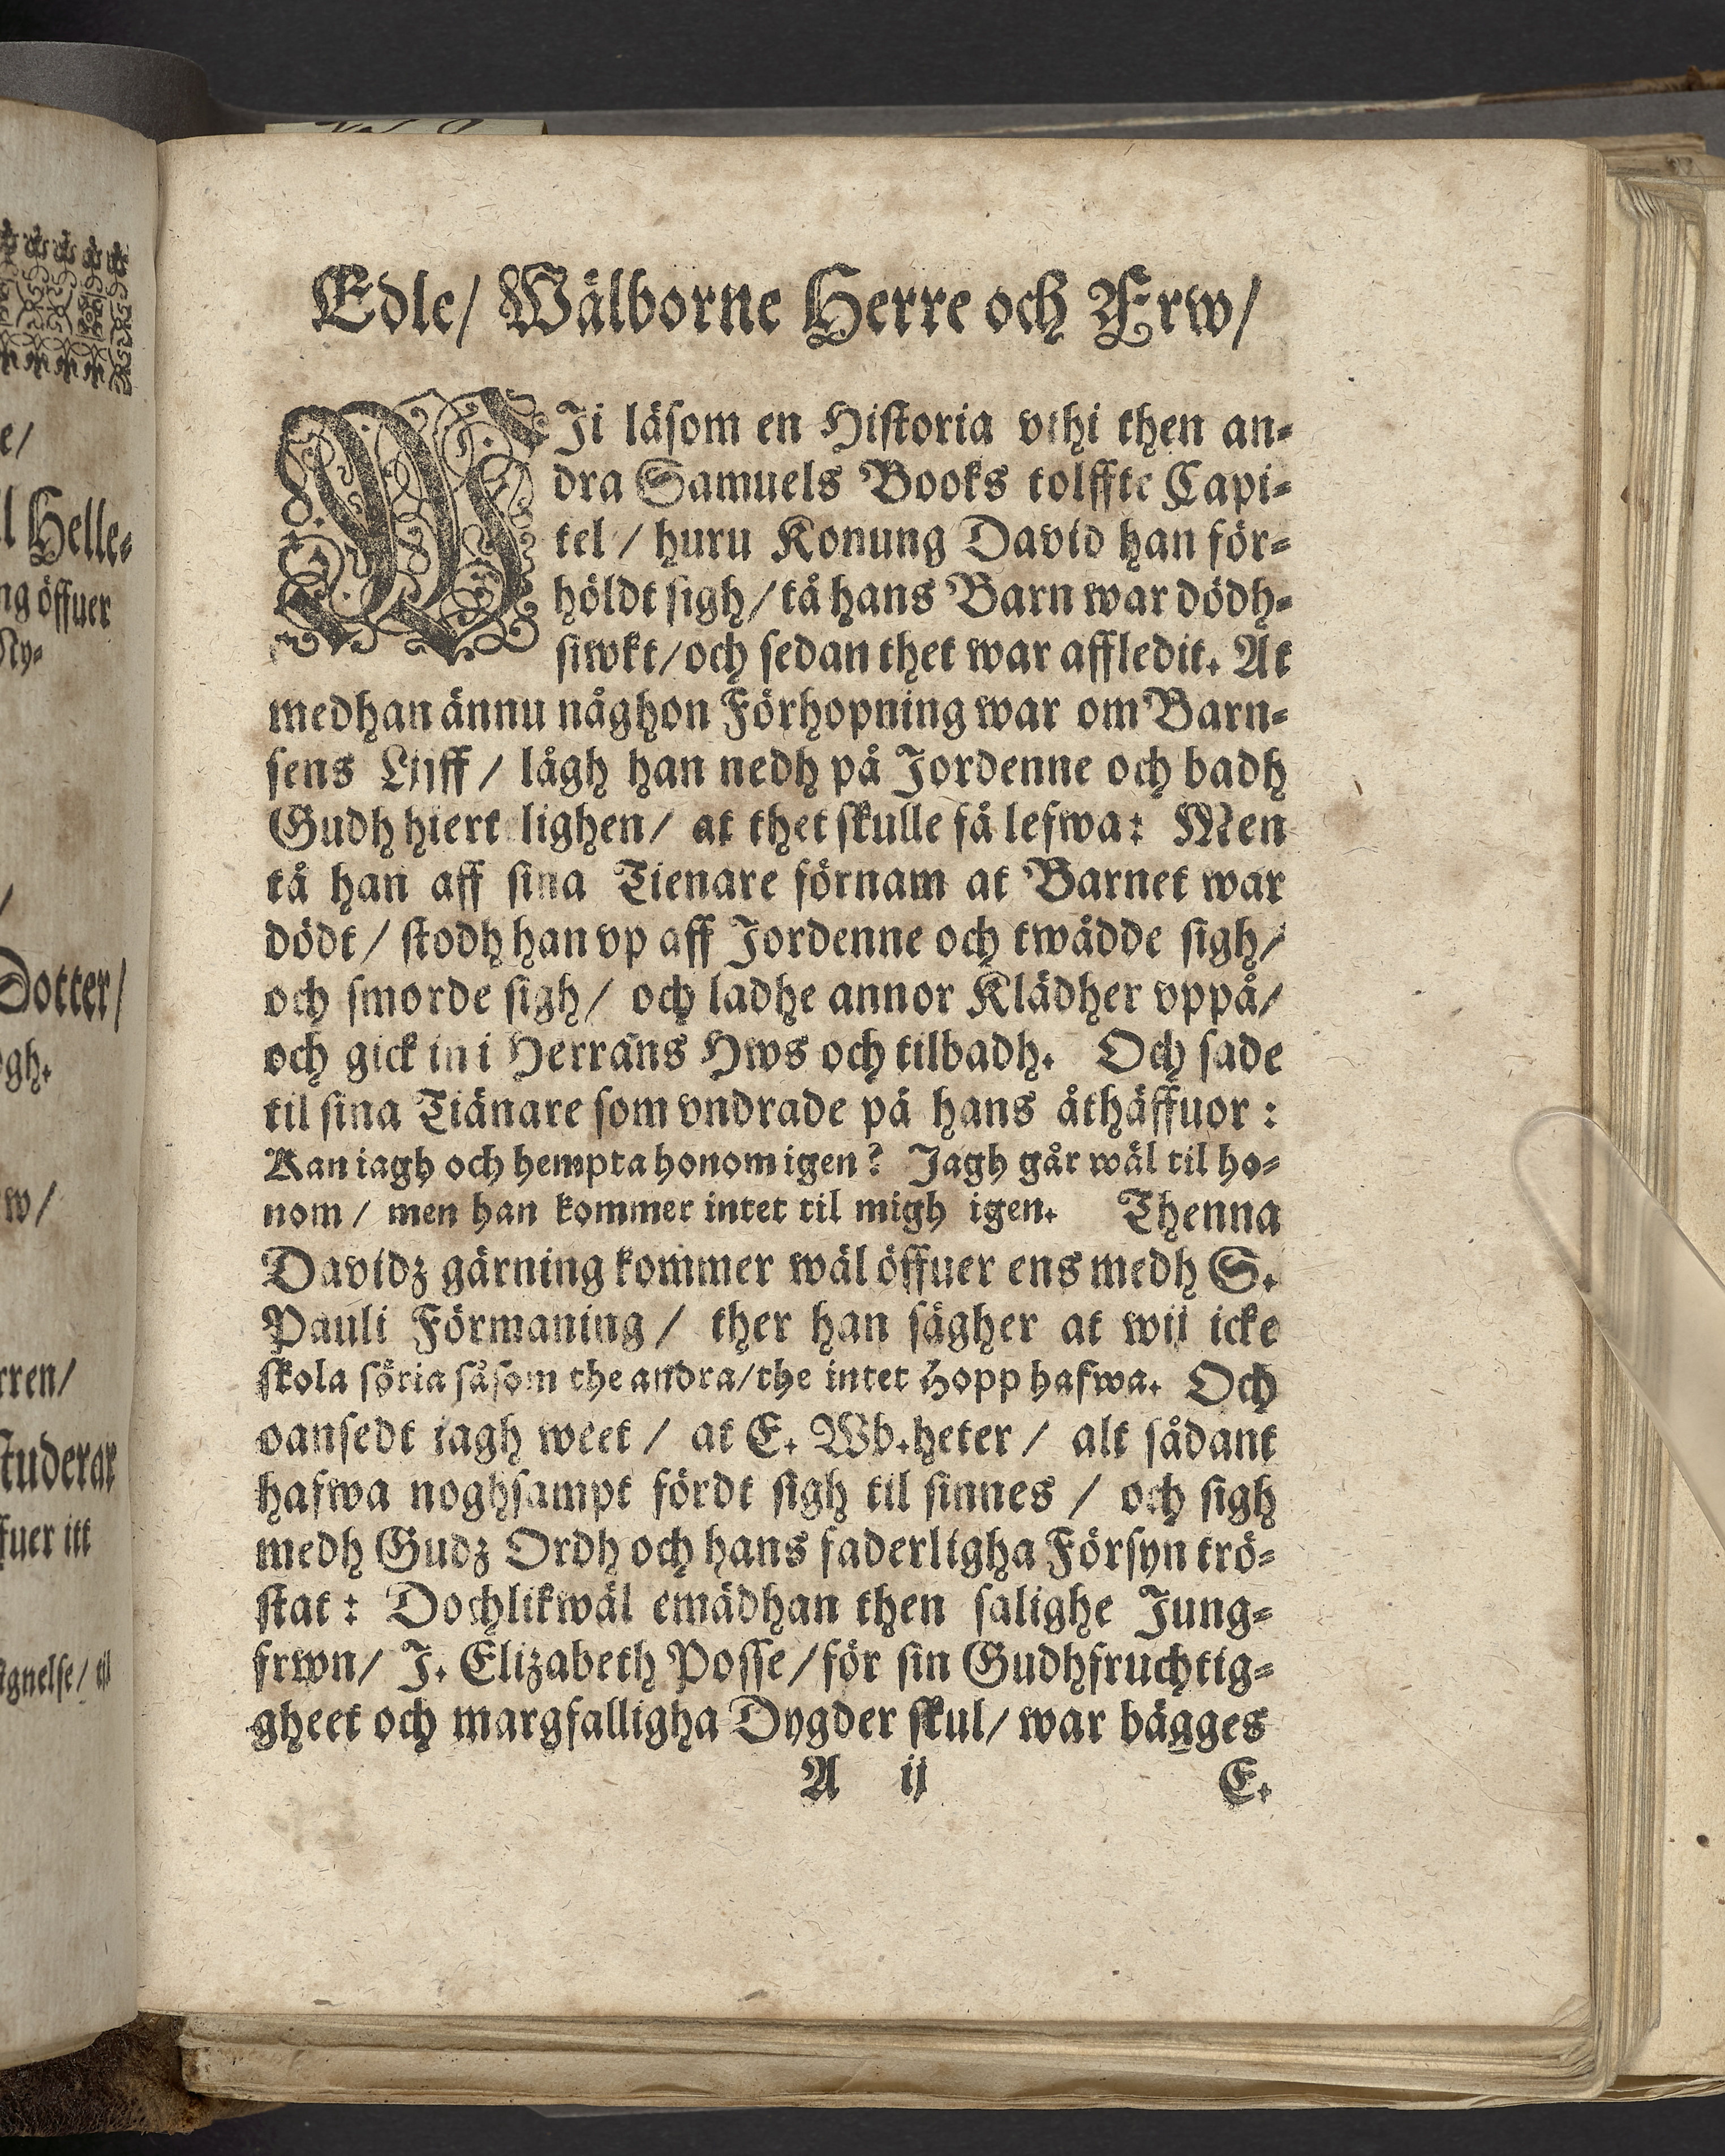 Edle/ Wälborne Herre och Frw/
WIi läsom en Historia vthi then an-
dra Samuels Books tolffte Capi-
tel / huru Konung David han för-
höldt sigh/ tå hans Barn war dödh-
siwkt/ och sedan thet war affledit. At
medhan ännu någhon Förhopning war om Barn-
sens Lijff / lågh han nedh på Jordenne och badh
Gudh hiert lighen/ at thet skulle få lefwa: Men
tå han aff sina Tienare förnam at Barnet war
dödt/ stodh han vp aff Jordenne och twådde sigh/
och smorde sigh/ och ladhe annor Klädher vppå/
och gick in i Herrans Hws och tilbadh. Och sade
til sina Tiänare som vndrade på hans åthäffuor :
Kan iagh och hempta honom igen? Jagh går wäl til ho-
nom / men han kommer intet til migh igen. Thenna
Davidz gärning kommer wäl öffuer ens medh S.
Pauli Förmaning / ther han sägher at wij icke
skola söria såsom the andra/ the intet Hopp hafwa. Och
oansedt iagh weet / at E. Wb.heter / alt sådant
hafwa noghsampt fördt sigh til sinnes / och sigh
medh Gudz Ordh och hans faderligha Försyn trö-
stat : Dochlikwäl emädhan then salighe Jung-
frwn/ J. Elizabeth Posse/ för sin Gudhfruchtig-
gheet och margfalligha Dygder skul/ war bägges
A ij E.
e/
l Helle-
ng öffuer
Sty-
/
Dotter/
ogh.
w/
rren/
studerar
fuer itt
ignelse/ til